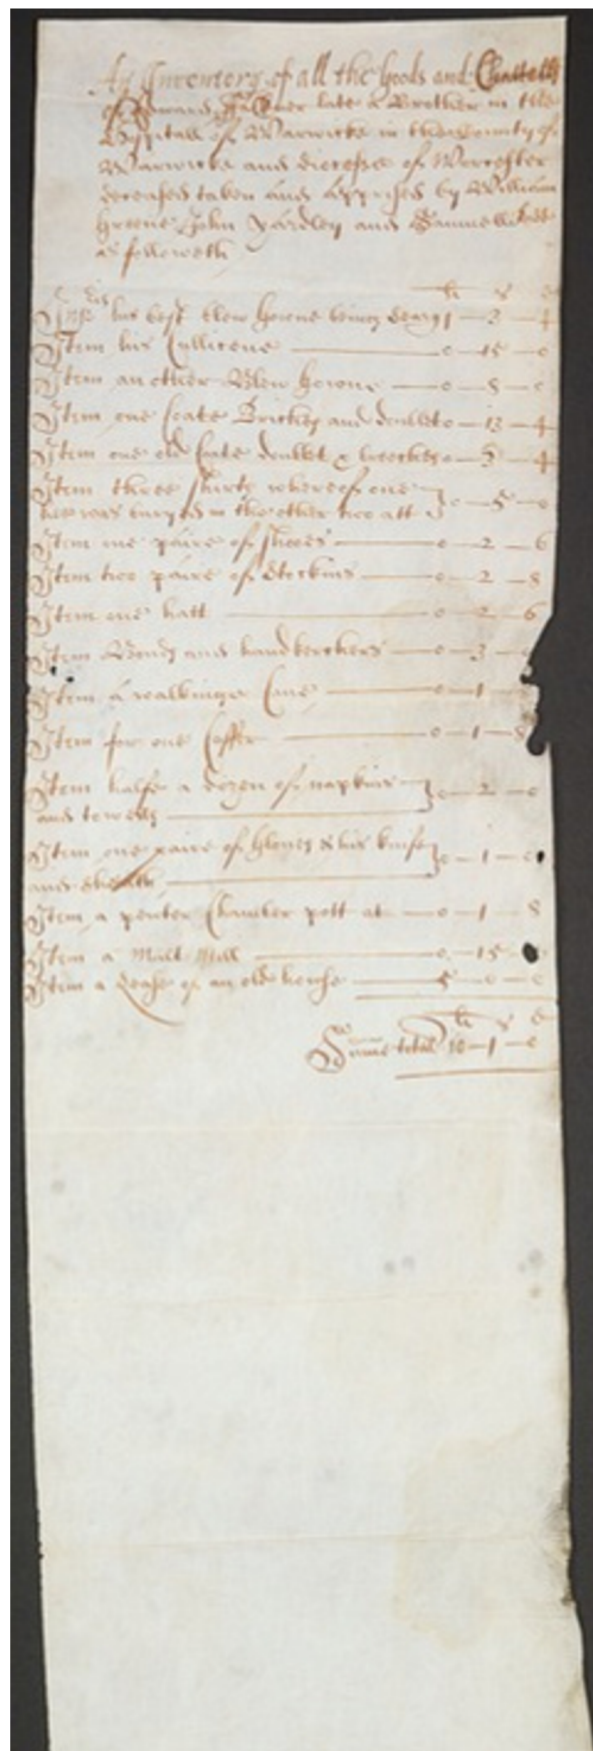 An Inventory of all the Goods and Chattells
of Edward late a Brother in the
Hospitall of Warwicke in the County of
Warwicke and diocesse of Worcester
deceased taken and apprised by William
Greene John Yardley and Samuell
as followeth
li s d
his best blew Gowne being 1 — 3 — 4
Item his — 0 — 15 — 0
Item an other Blew Gowne — 0 — 8 — 0
Item one Coate Britches and doublet 0 — 13 — 4
Item one old Coate doublet & breeches 0 — 3 — 4
Item three shirts whereof one
hee was buryed in the other two att 0 — 5 — 0
Item one paire of shooes — 0 — 2 — 6
Item two paire of Stockins — 0 — 2 — 8
Item one hatt — 0 — 2 — 6
Item Bands and handkerchers — 0 — 3 —
Item a walkinge Cane — 0 — 1 —
Item for one Coffer — 0 — 1 — 8
Item halfe a dozen of napkins
and towells — 0 — 2 — 0
Item one paire of Gloves & his knife
and sheath — 0 — 1 — 0
Item a pewter Chamber pott at — 0 — 1 — 8
Item a Malt Mill — 0 — 15 —
Item a Lease of an old house — 5 — 0 — 0
li s d
Summe total 10 — 1 — 0